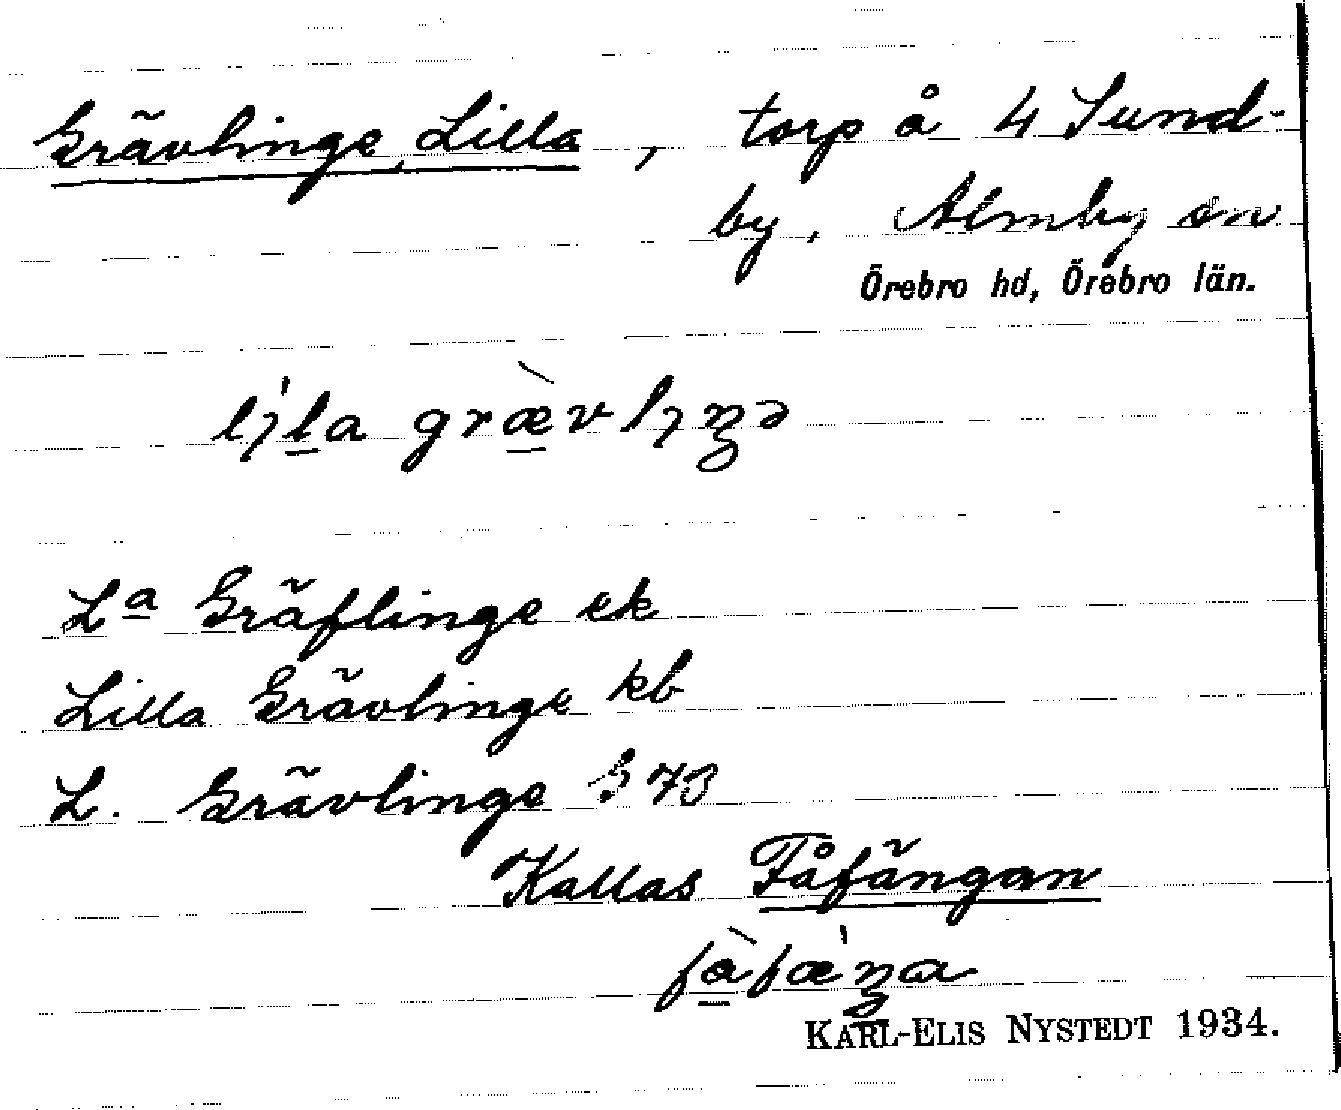 Grävlinge, Lilla, torp å 4 Sund-
by, Almby sn
Örebro hd, Örebro län.
lı̀la græ̀vlıŋə
Lª Gräflinge ek
Lilla Grävlinge kb
L. Grävlinge G 73
Kallas Fåfängan
fàfæ̍ŋa
KARL-ELIS NYSTEDT 1934.